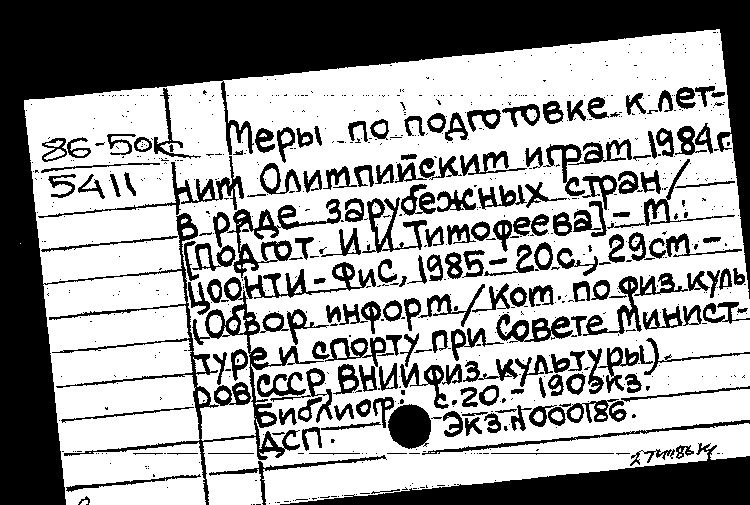 86-50к
5411
Меры по подготовке к лет-
ним Олимпийским играм 1984г.
в ряде зарубежных стран /
[Подгот. И.И.Тимофеева].- М.:
ЦООНТИ-ФиС, 1985.- 20с.; 29см.-
(Обзор. информ. / Ком. по физ.куль
туре и спорту при Совете Минист-
ров СССР, ВНИИ физ. культуры).
Библиогр.: с.20.- 190экз.
ДСП. Экз.N000186.